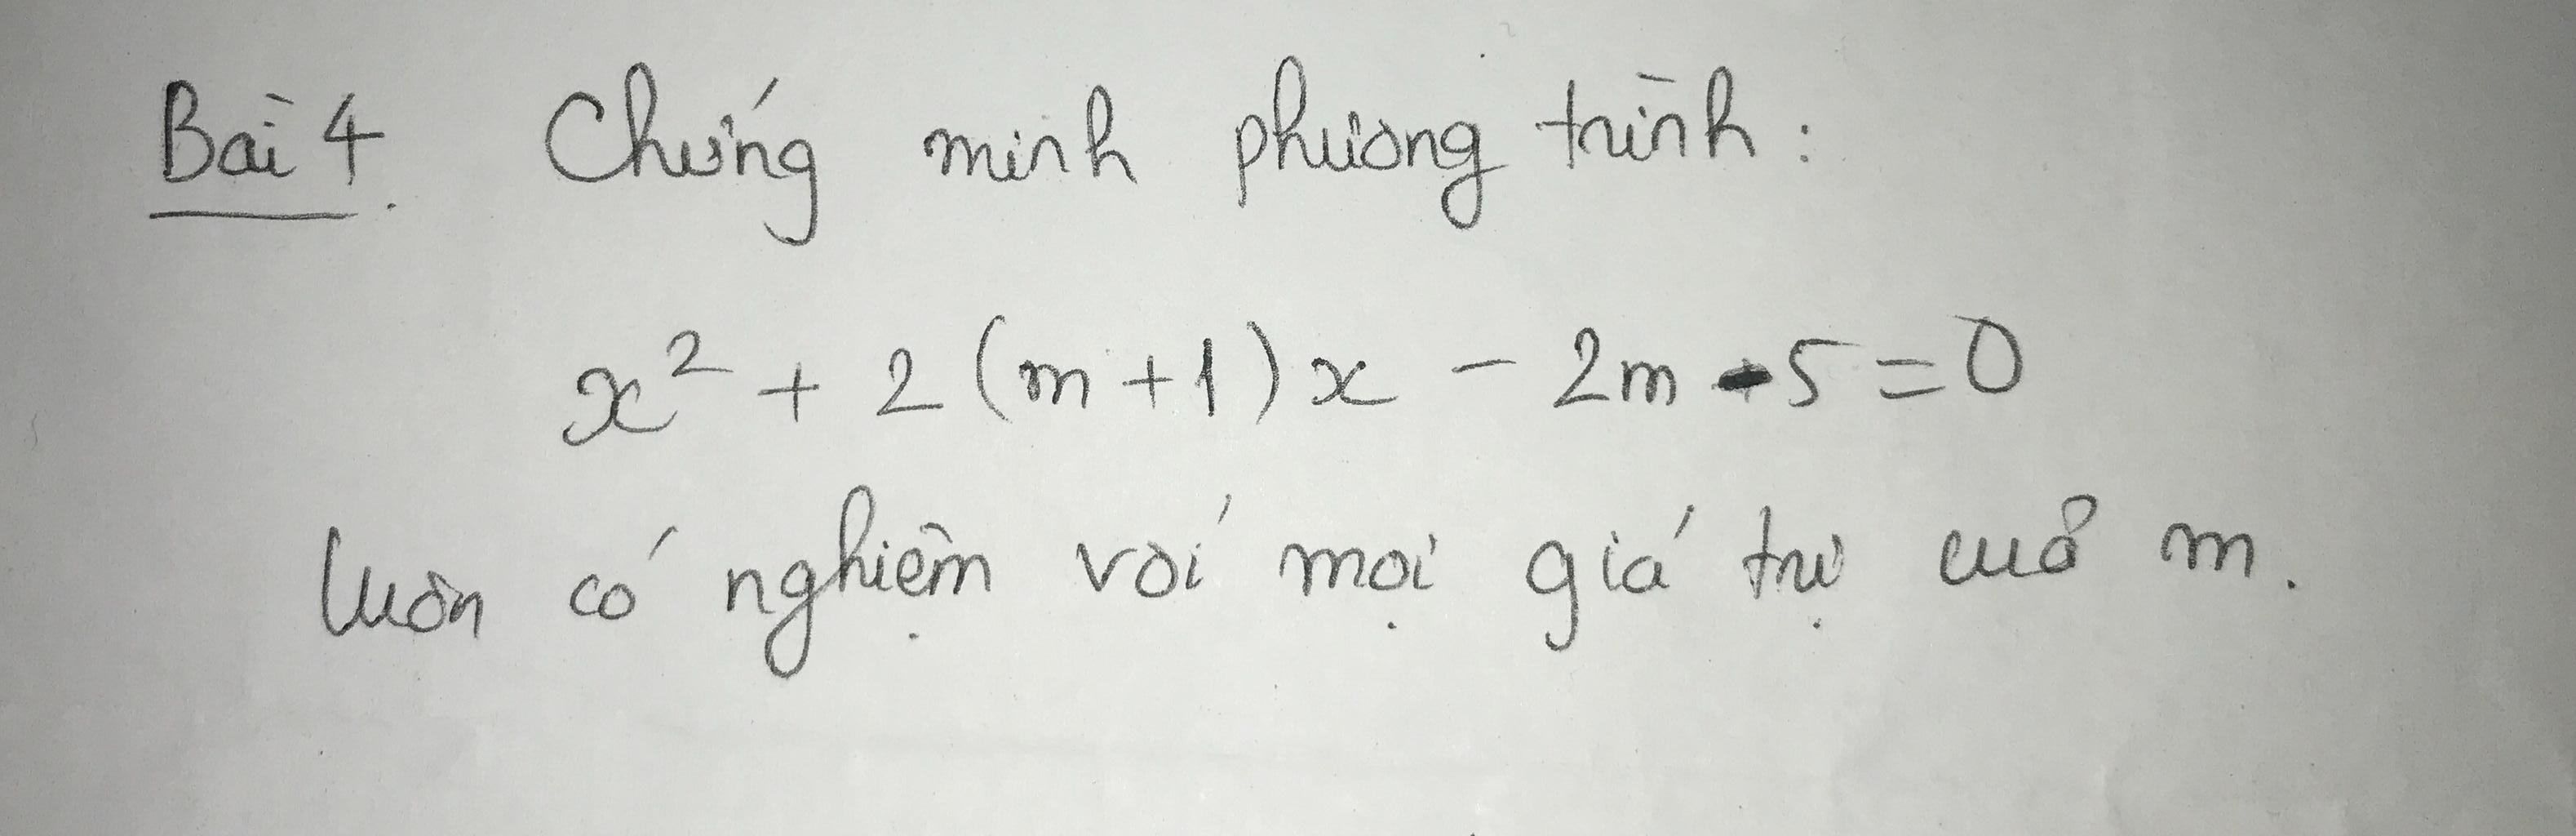 Bài 4. Chứng minh phương trình:
x² + 2 (m+1) x - 2m - 5 = 0
luôn có nghiệm với mọi giá trị của m.